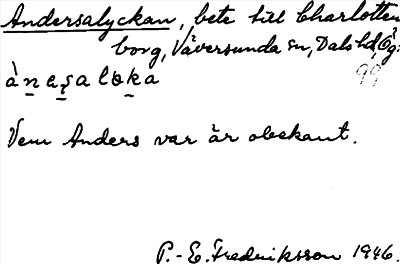 Andersalyckan, bete till Charlotten
borg, Väversunda sn, Dals hd, Ög.
99
Vem Anders var är obekant.
P.-E. Fredriksson 1946.